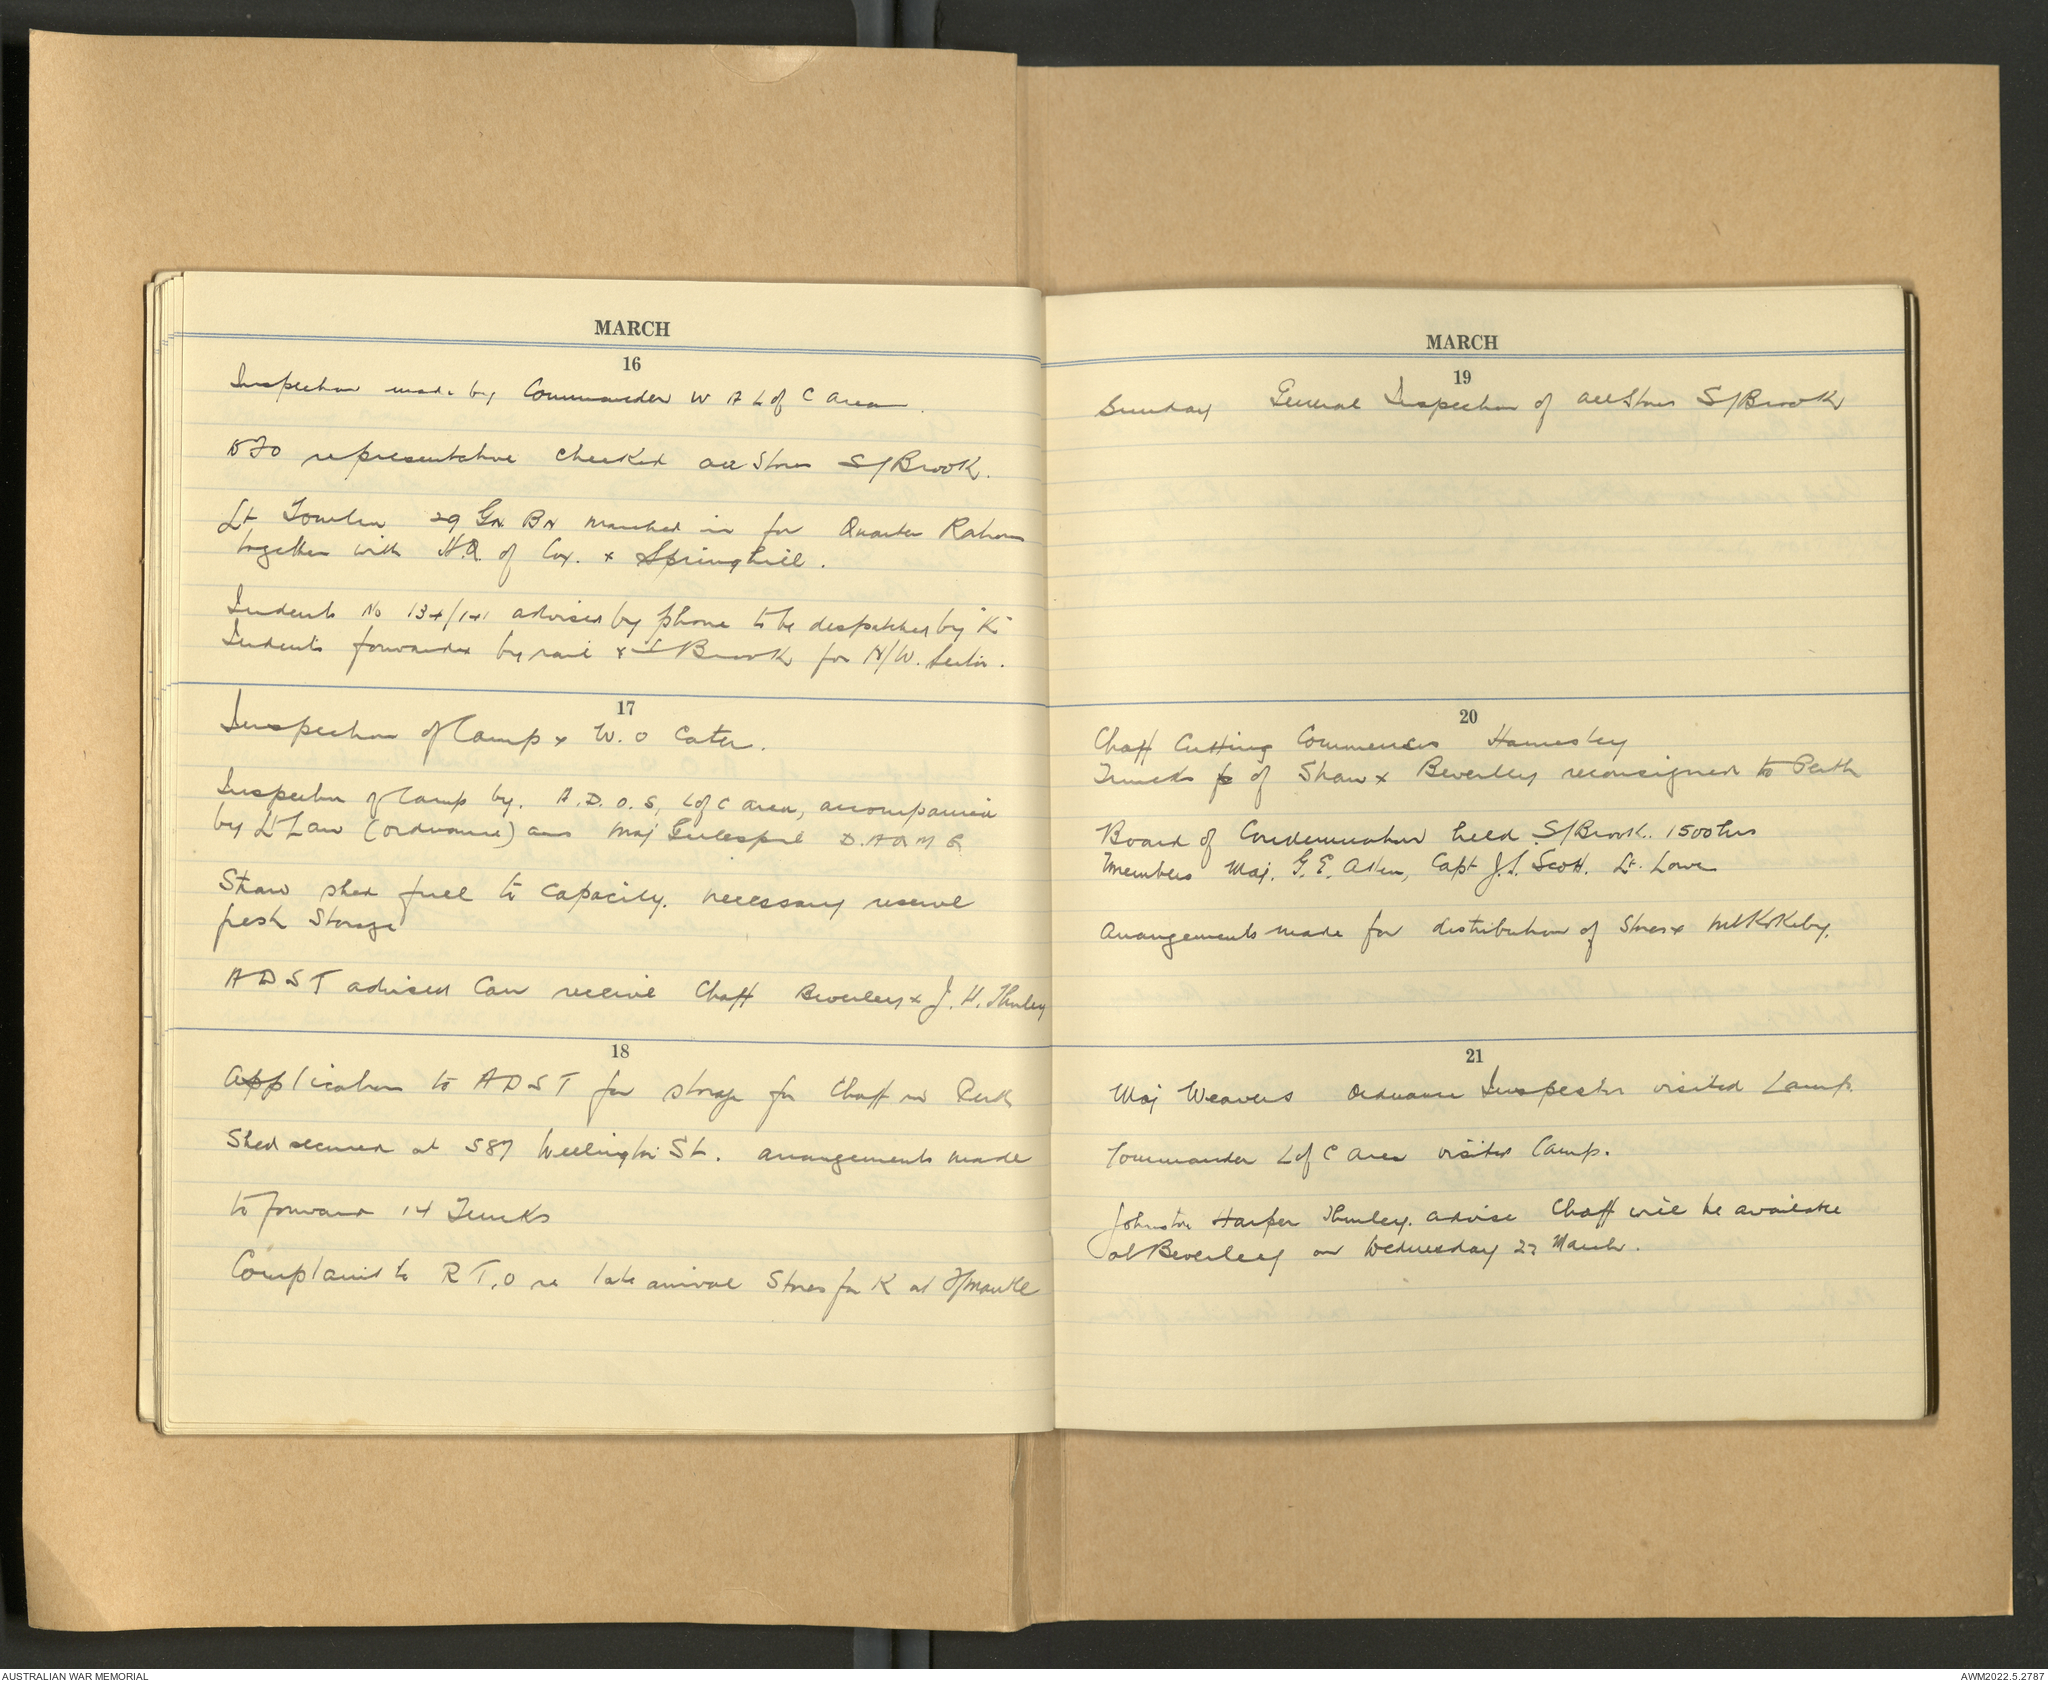 MARCH
16
Inspection made by Commander W A L of C area.
DFO representative checked all stores S/Brook.
Lt 29 Gn Bn marched in for Quarter Rations
together with H.Q. of Coy. x Springhill.
Indents No 134/141 advised by phone to be despatched by "K"
Indents forwarded by rail x S/Brook for N/W. Sector.
17
Inspection of Camp x W.O Cater.
Inspection of Camp by. A.D.O.S, L of C area, accompanied
by Lt Law (ordnance) and Maj Gillespie D.A.Q.M.G
Straw shed full to capacity. necessary reserve
fresh Storage
ADST advised Can receive Chaff Beverley x J. H. Thurley
18
Application to ADST for storage for Chaff in Perth
Shed secured at 587 Wellington St. arrangements made
to forward 14 Trucks
Complaint to R T.O re late arrival Stores for K at F/Mantle
MARCH
19
Sunday General Inspection of all Stores S/Brook
20
Chaff Cutting Commences Hamersley
Trucks of Straw x Beverley reconsigned to Perth
Board of Condemnation held S/Brook. 1500 hrs
Members Maj. G.E. Aken, Capt J.S. Scott. Lt. Lowe
Arrangements made for distribution of Stores x Mt Kokeby.
21
Maj Weavers Ordnance Inspector visited Camp.
Commander L of C Area visited Camp.
Johnston Harper Thurley. advise Chaff will be available
at Beverley on Wednesday 22 March.
AUSTRALIAN WAR MEMORIAL
AWM2022.5.2787